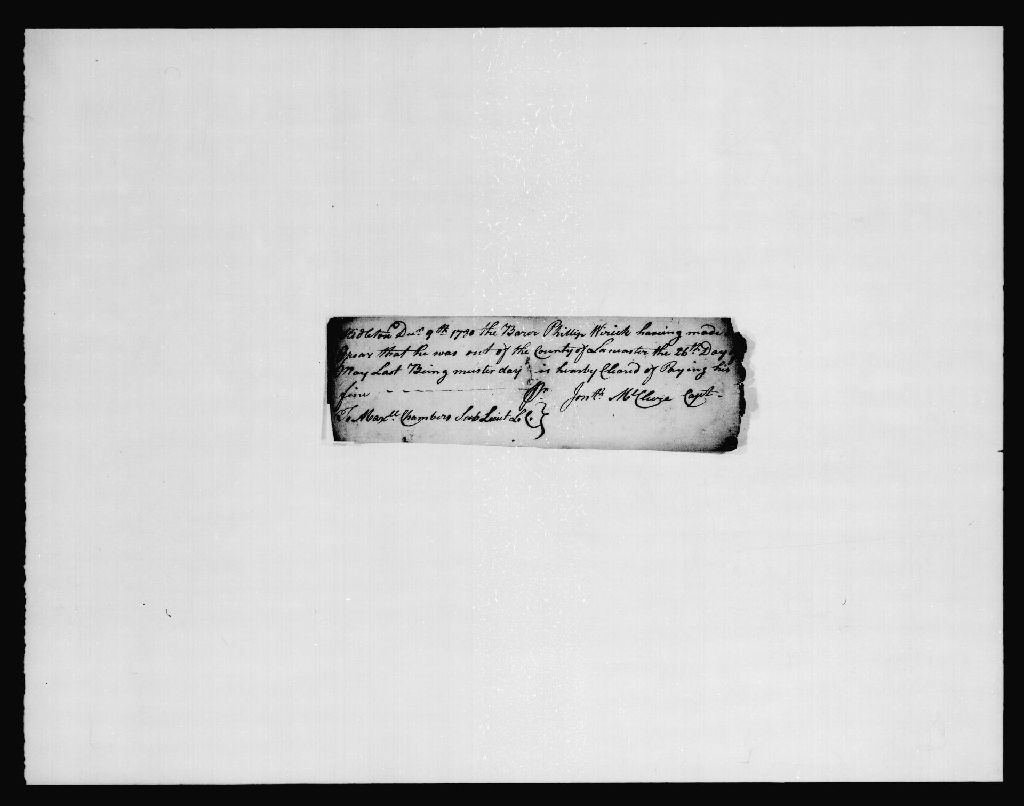 Midleton Decr. 9th 1780 the Barer Phillip Wirick having made
apear that he was out of the County of Lancaster the 26th Day of
May Last Being muster day is hearby Cleard of Paying his
fine - - - - Pr. Jonth. McClure Capt-
To Maxll. Chambers Sub Lieut L C